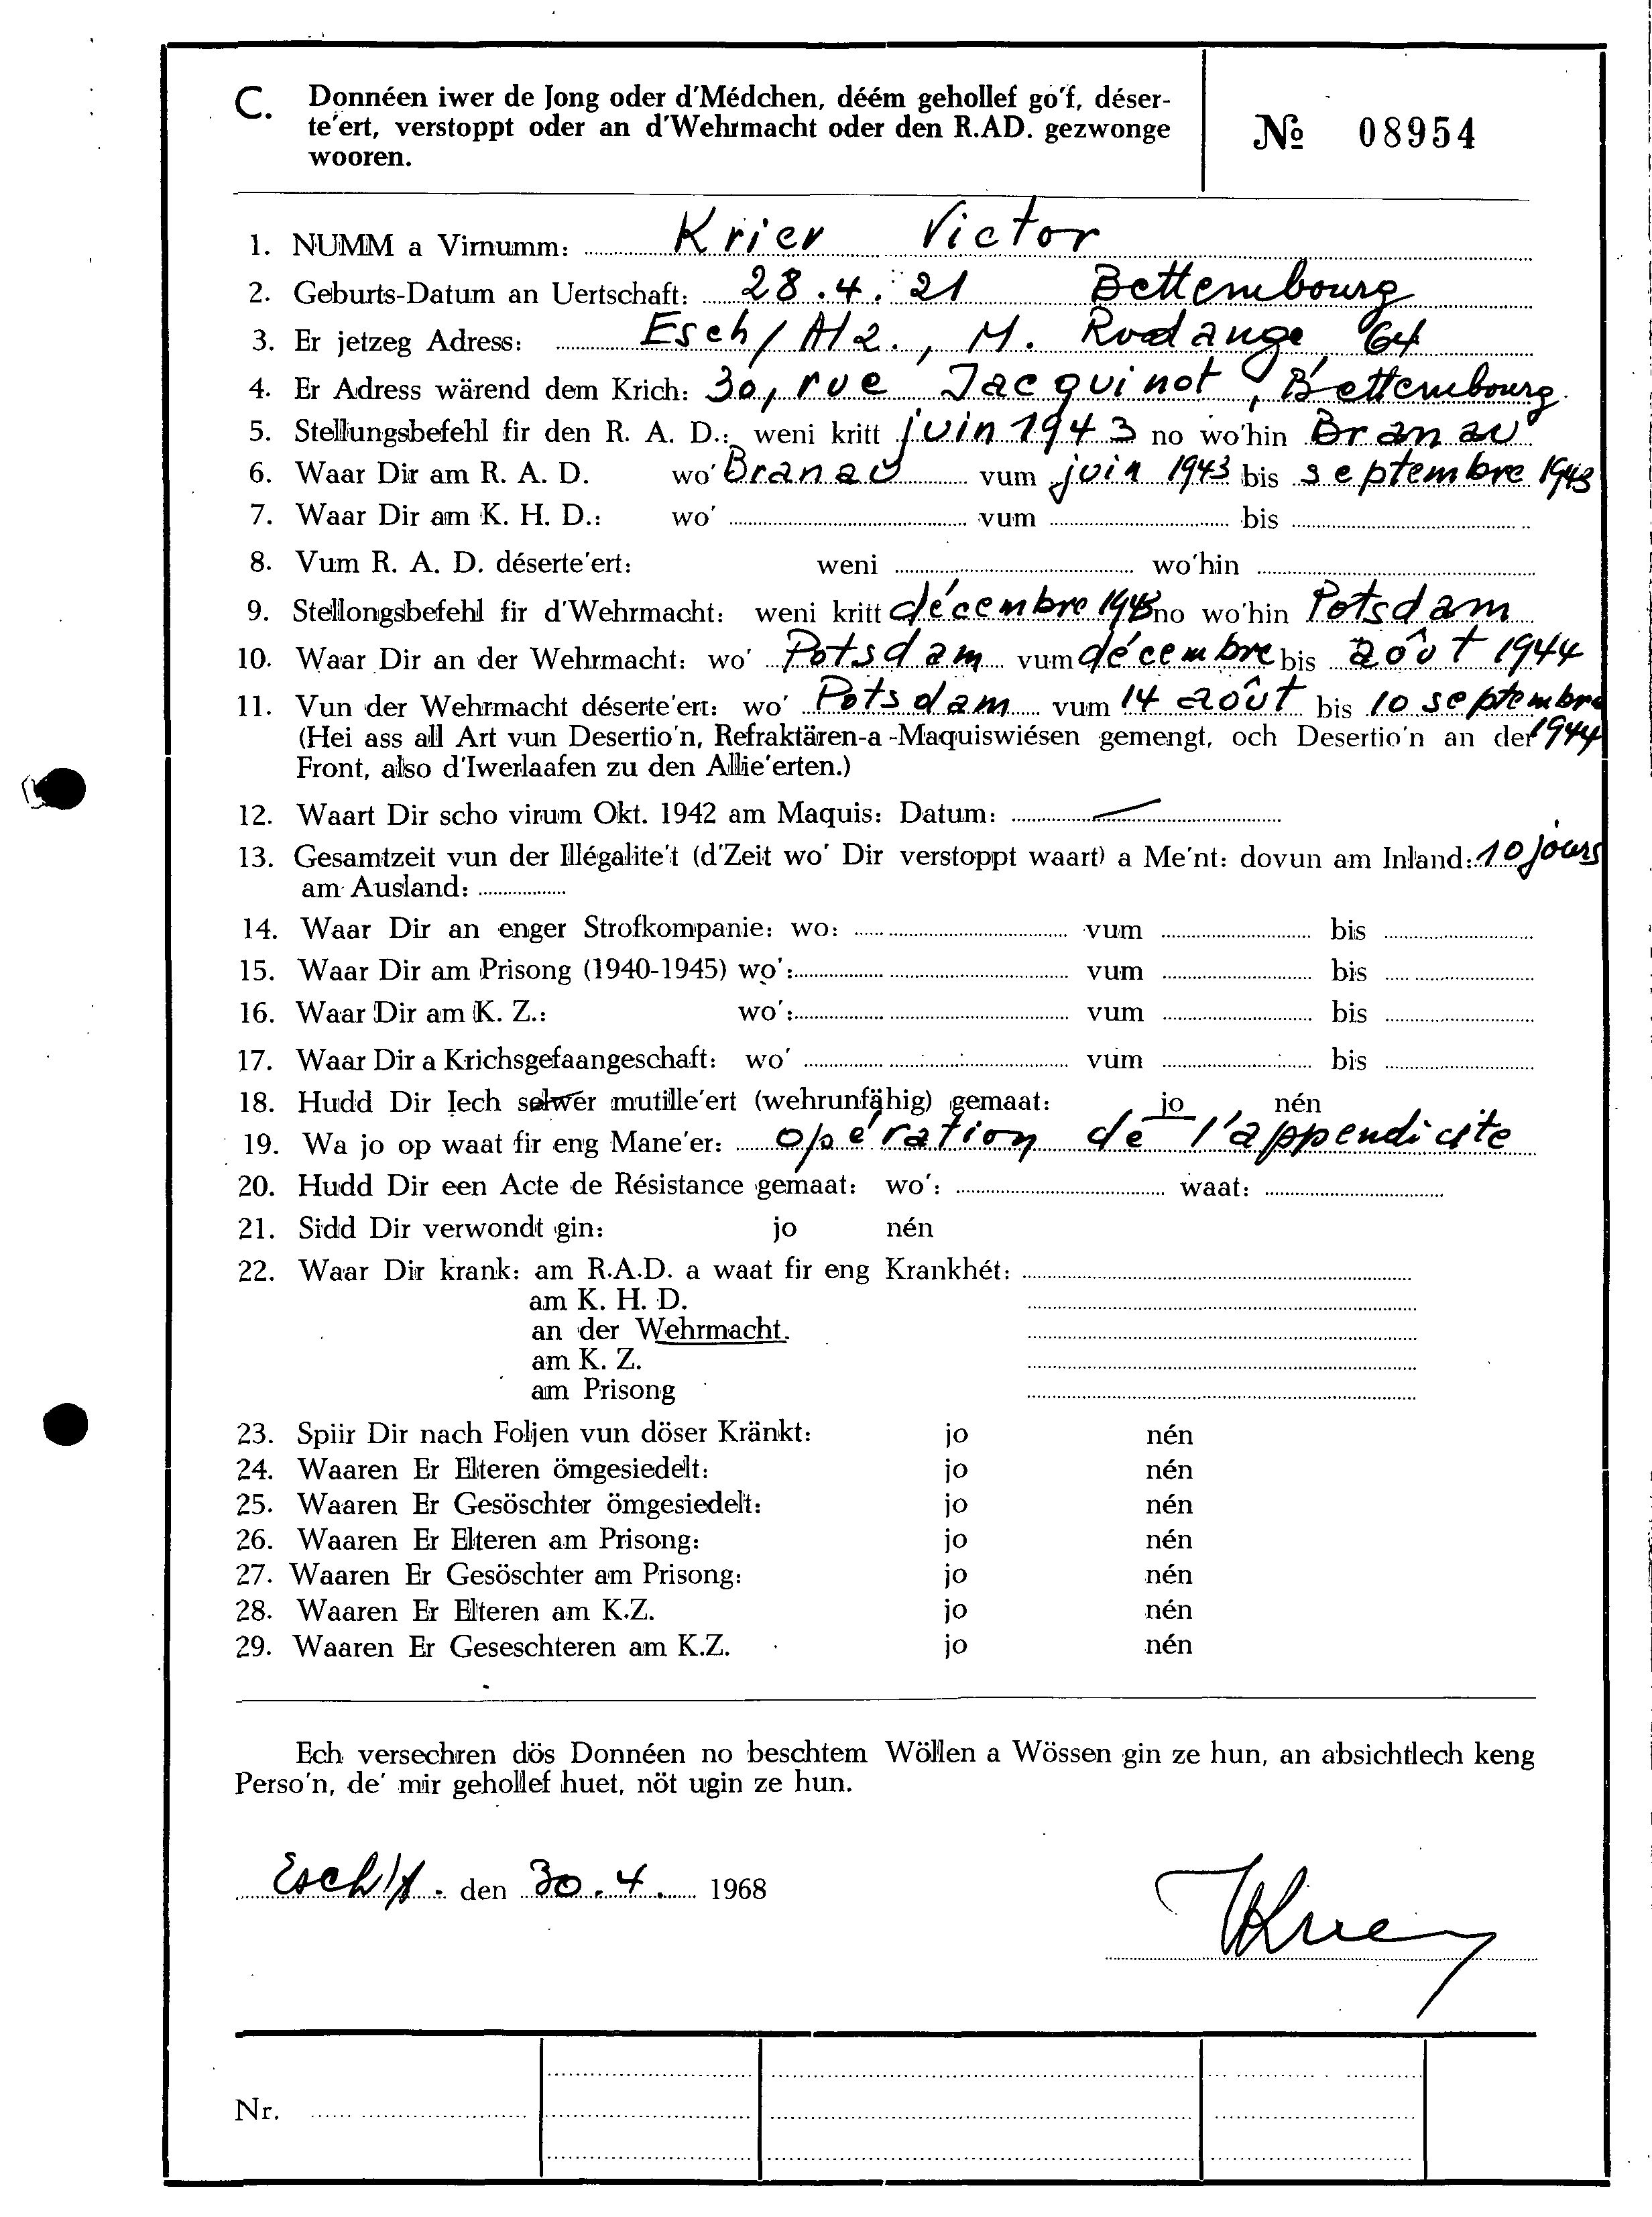 C. Donnéen iwer de Jong oder d'Médchen, déém gehollef go'f, déser-
te'ert, verstoppt oder an d'Wehrmacht oder den R.AD. gezwonge
wooren.
№ 08954
1. NUMM a Virnumm: Krier Victor
2. Geburts-Datum an Uertschaft: 28.4.21 Bettembourg
3. Er jetzeg Adress: Esch/Alz., M. Rodange, 64
4. Er Adress wärend dem Krich: 30, rue Jacquinot, Bettembourg
5. Stellungsbefehl fir den R. A. D.: weni kritt juin 1943 no wo'hin Branau
6. Waar Dir am R. A. D. wo' Branau vum juin 1943 bis septembre 1943
7. Waar Dir am K. H. D.: wo' vum bis
8. Vum R. A. D. déserte'ert: weni wo'hin
9. Stellongsbefehl fir d'Wehrmacht: weni kritt décembre 1943 no wo'hin Potsdam
10. Waar Dir an der Wehrmacht: wo' Potsdam vum décembre bis août 1944
11. Vun der Wehrmacht déserte'ert: wo' Potsdam vum 14 août bis 10 septembre
(Hei ass all Art vun Desertio'n, Refraktären-a-Maquiswiésen gemengt, och Desertio'n an der 1944
Front, also d'Iwerlaafen zu den Allie'erten.)
12. Waart Dir scho virum Okt. 1942 am Maquis: Datum: —
13. Gesamtzeit vun der Illégalite't (d'Zeit wo' Dir verstoppt waart) a Me'nt: dovun am Inland: 10 jours
am Ausland:
14. Waar Dir an enger Strofkompanie: wo: vum bis
15. Waar Dir am Prisong (1940-1945) wo': vum bis
16. Waar Dir am K. Z.: wo': vum bis
17. Waar Dir a Krichsgefaangeschaft: wo' vum bis
18. Hudd Dir Iech selwer mutille'ert (wehrunfähig) gemaat: jo nén
19. Wa jo op waat fir eng Mane'er: opération de l'appendicite
20. Hudd Dir een Acte de Résistance gemaat: wo': waat:
21. Sidd Dir verwondt gin: jo nén
22. Waar Dir krank: am R.A.D. a waat fir eng Krankhét:
am K. H. D.
an der Wehrmacht.
am K. Z.
am Prisong
23. Spiir Dir nach Foljen vun döser Kränkt: jo nén
24. Waaren Er Elteren ömgesiedelt: jo nén
25. Waaren Er Gesöschter ömgesiedelt: jo nén
26. Waaren Er Elteren am Prisong: jo nén
27. Waaren Er Gesöschter am Prisong: jo nén
28. Waaren Er Elteren am K.Z. jo nén
29. Waaren Er Geseschteren am K.Z. jo nén
Ech versechren dös Donnéen no beschtem Wöllen a Wössen gin ze hun, an absichtlech keng
Perso'n, de' mir gehollef huet, nöt ugin ze hun.
Esch/A. den 30.4. 1968
VKrier
Nr.